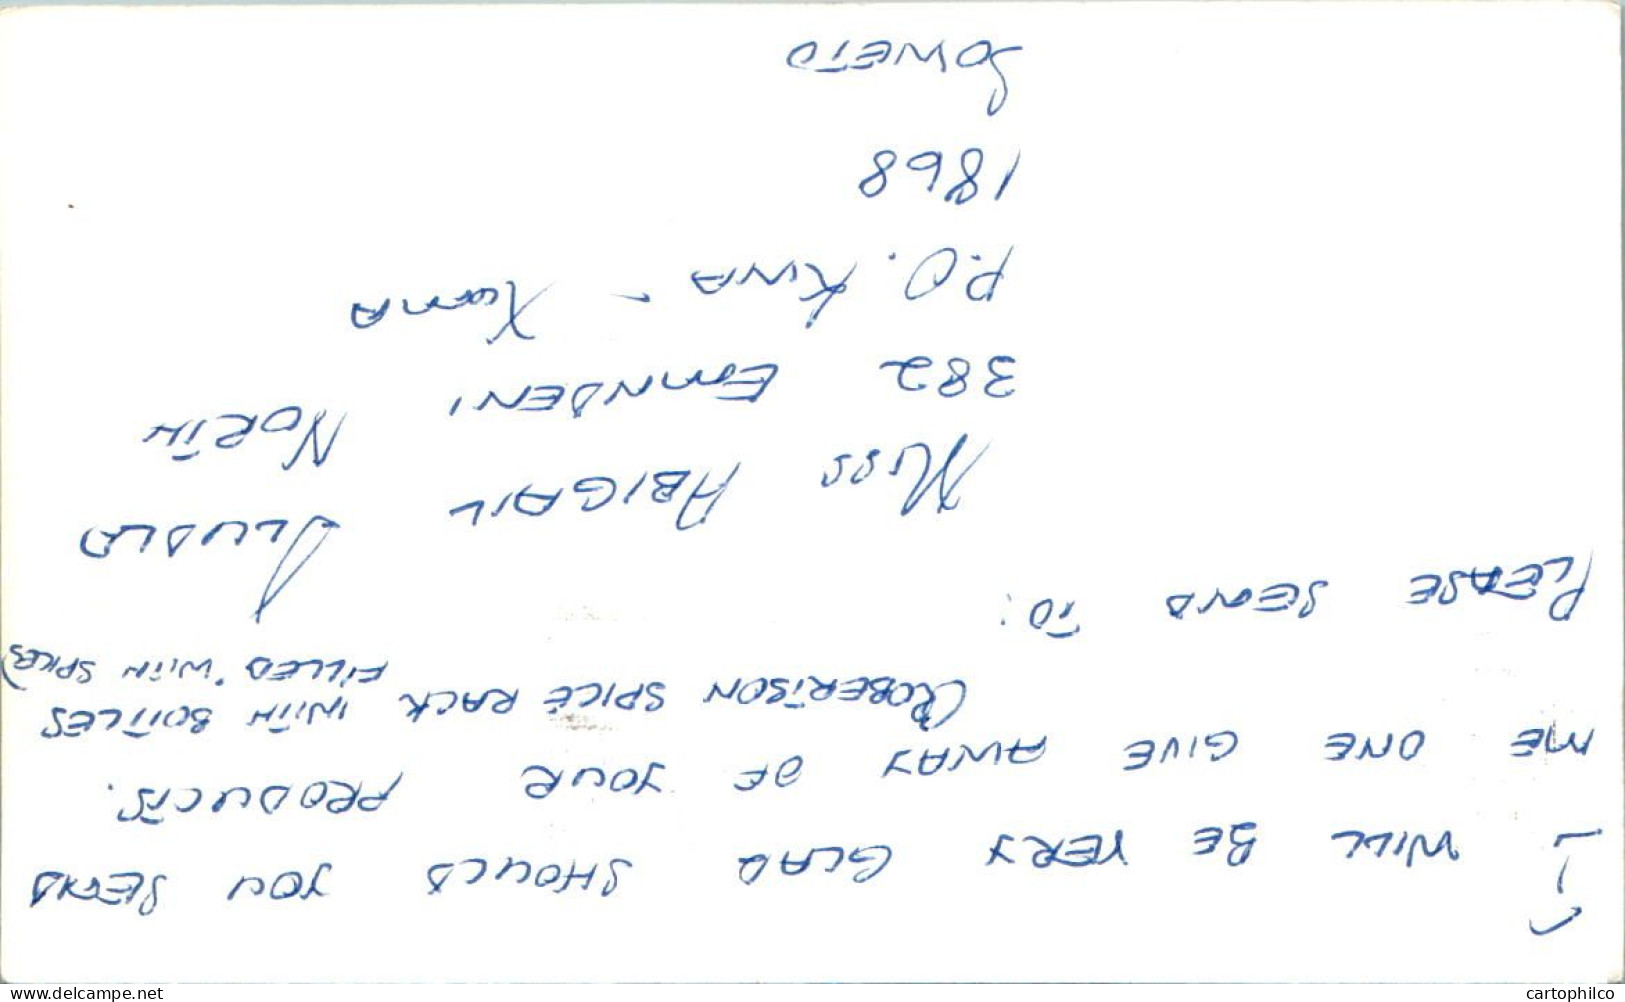 I WILL BE VERY GLAD SHOULD YOU SEND
ME ONE GIVE AWAY OF YOUR PRODUCTS.
(ROBERTSON SPICE RACK WITH BOTTLES
FILLED WITH SPICES)
PLEASE SEND TO:
MISS ABIGAIL DLUDLA
382 EMNDENI NORTH
P.O. KWA-XUMA
1868
SOWETO
www.delcampe.net
cartophilco